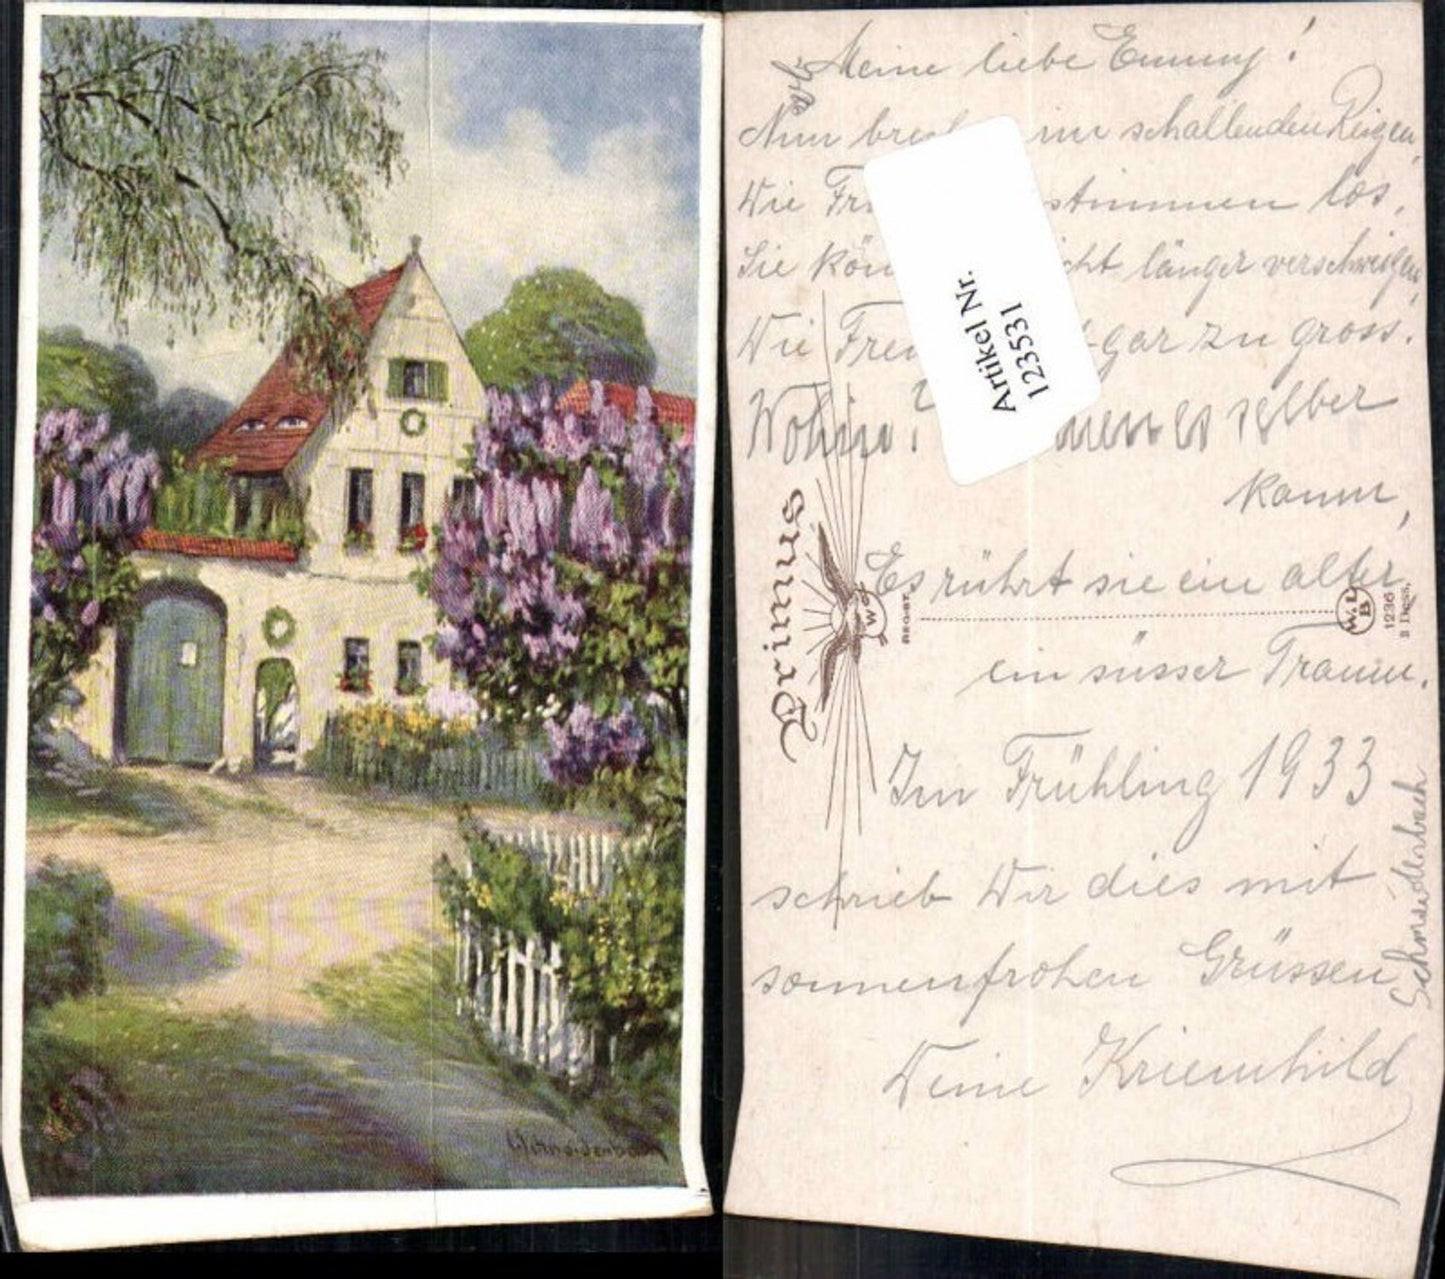 Meine liebe Emmy!
Nun brech im schallenden Reigen,
Wie Fr stimmen los,
Sie kön cht länger verschweigen,
Wie Freu gar zu gross.
Wohin? nen es selber
kaum,
Es rührt sie ein alter,
ein süsser Traum.
Im Frühling 1933
schrieb Wir dies mit
sonnenfrohen Grüssen
Deine Kriemhild
Artikel Nr.
123531
Primus
W
REG·BT.
W.L.
B
1236
B Dess.